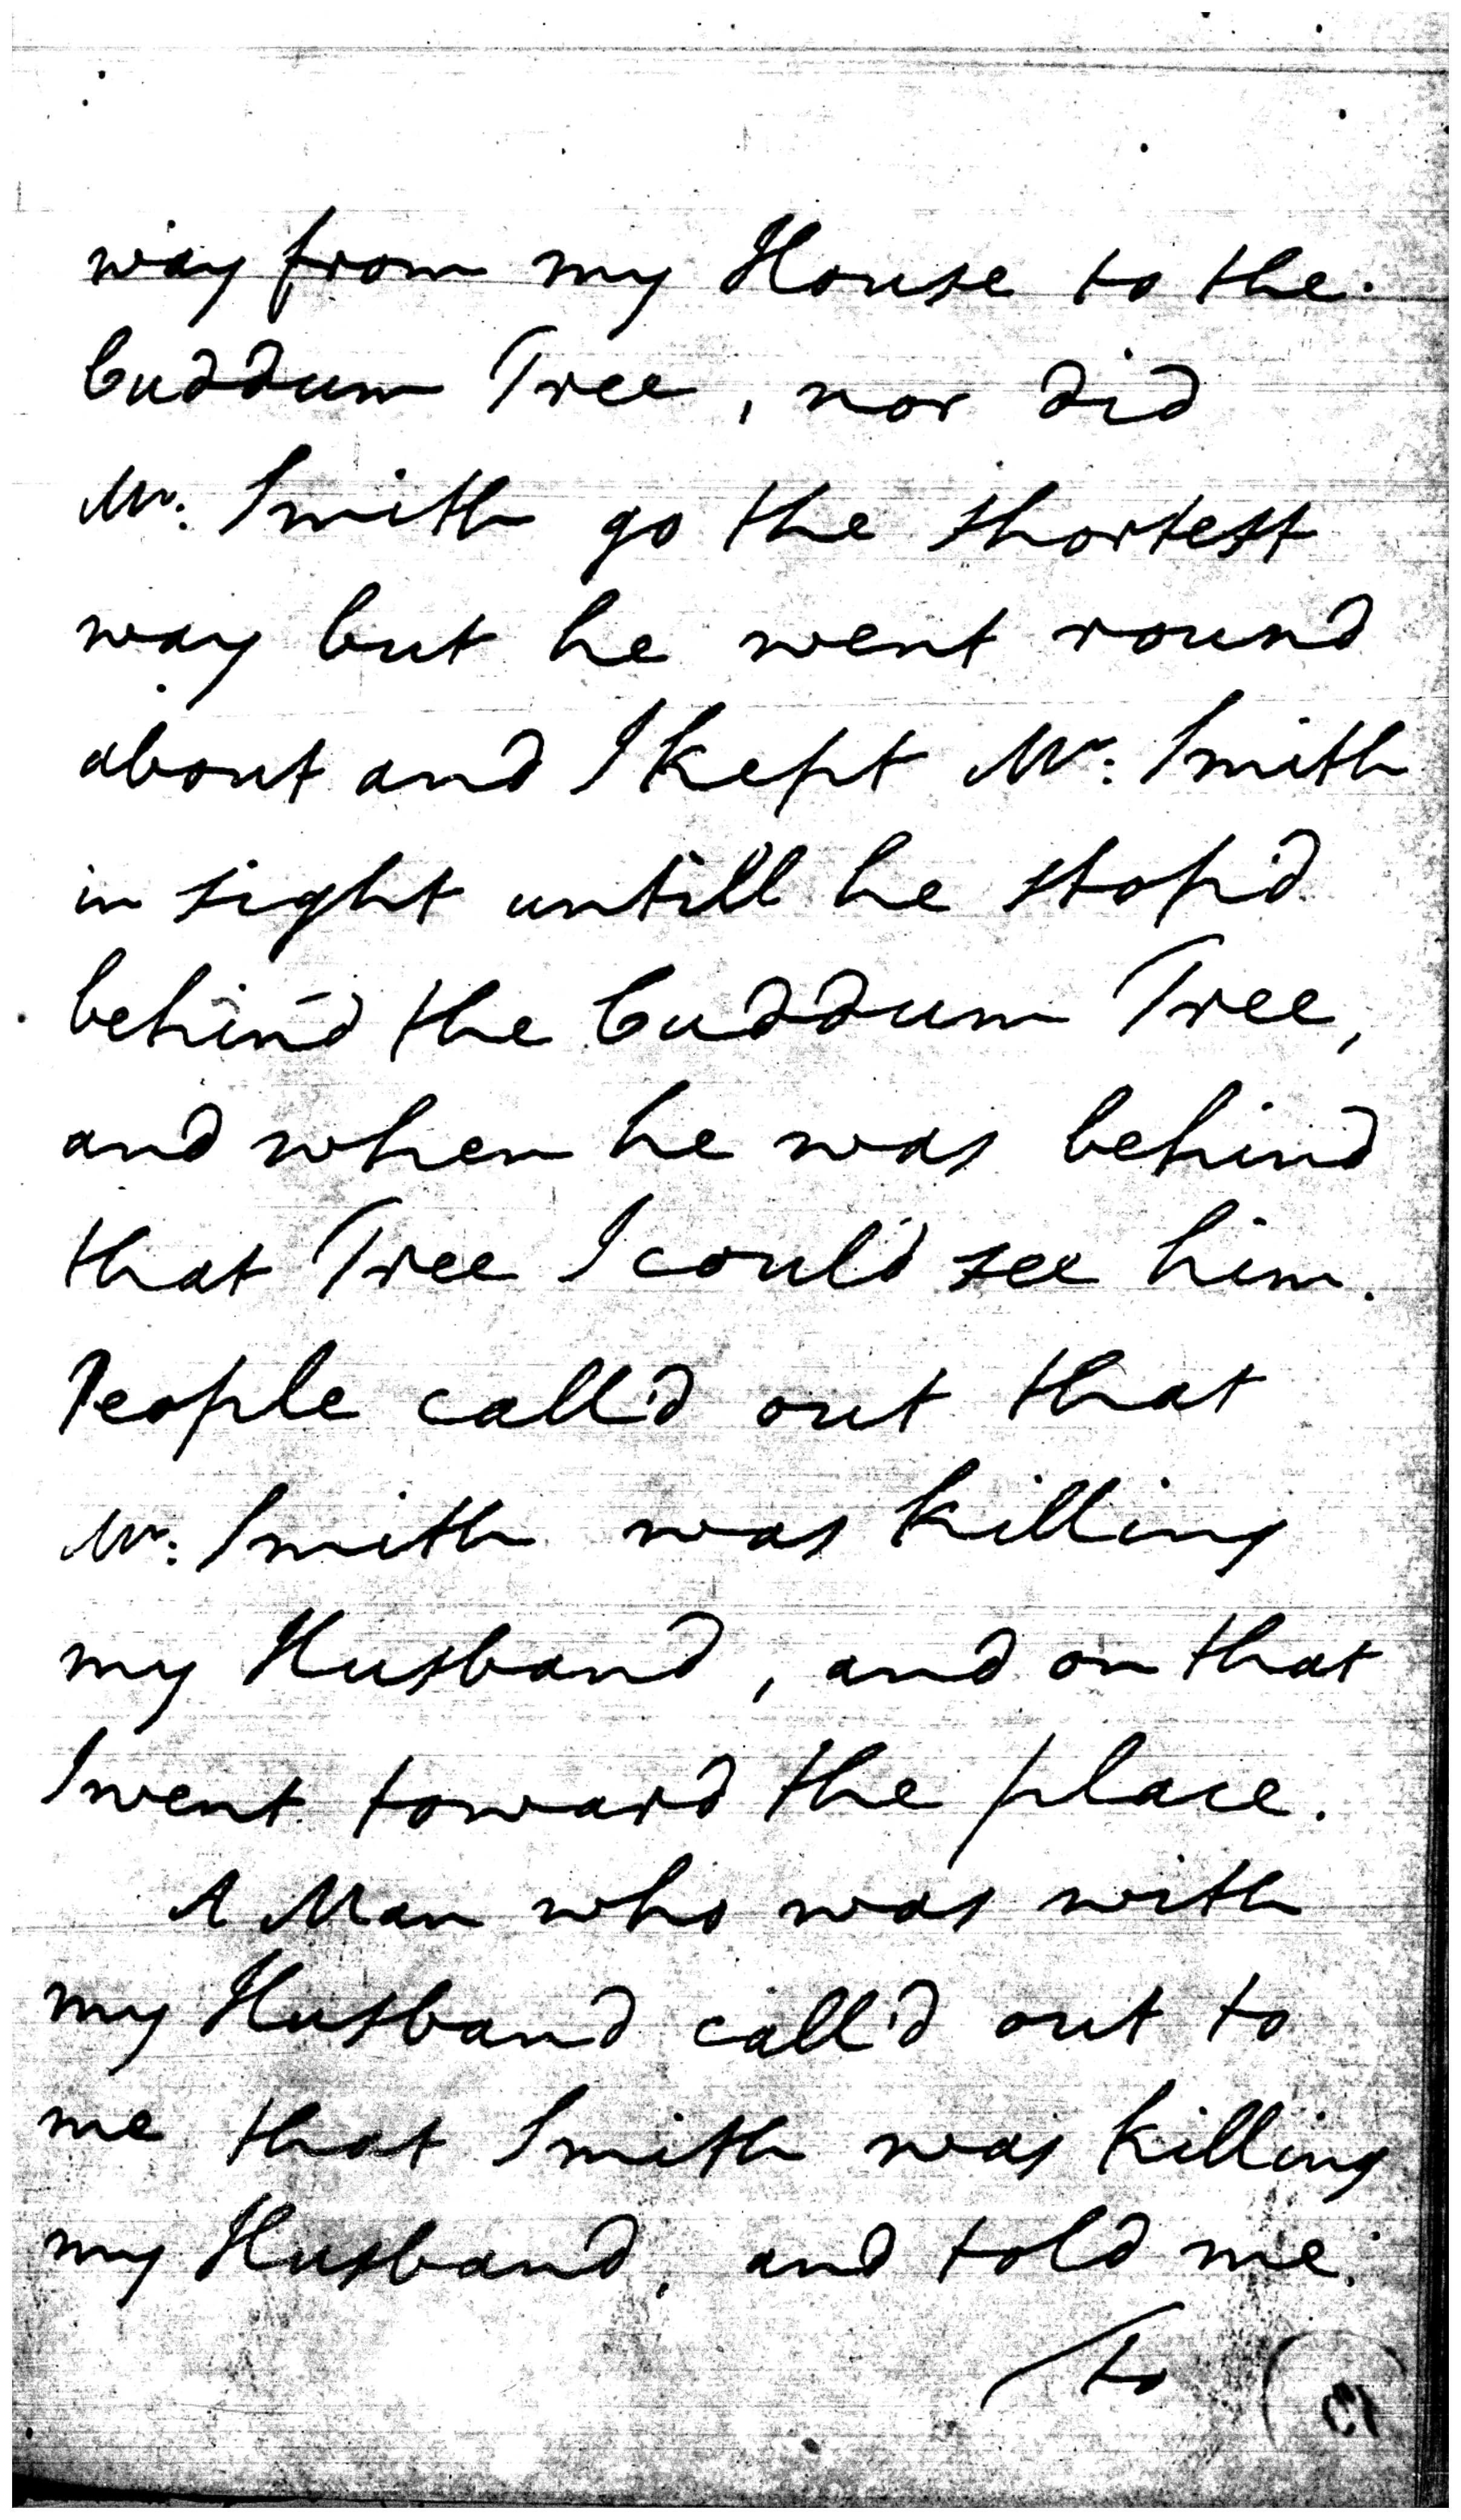 way from my House to the
Cuddum Tree, nor did
Mr: Smith go the shortest
way but he went round
about and I kept Mr: Smith
in sight untill he stop'd
behind the Cuddum Tree,
and when he was behind
that Tree I could see him.
People call'd out that
Mr: Smith was killing
my Husband, and on that
I went toward the place.
A Man who was with
my Husband call'd out to
me that Smith was killing
my Husband, and told me
to